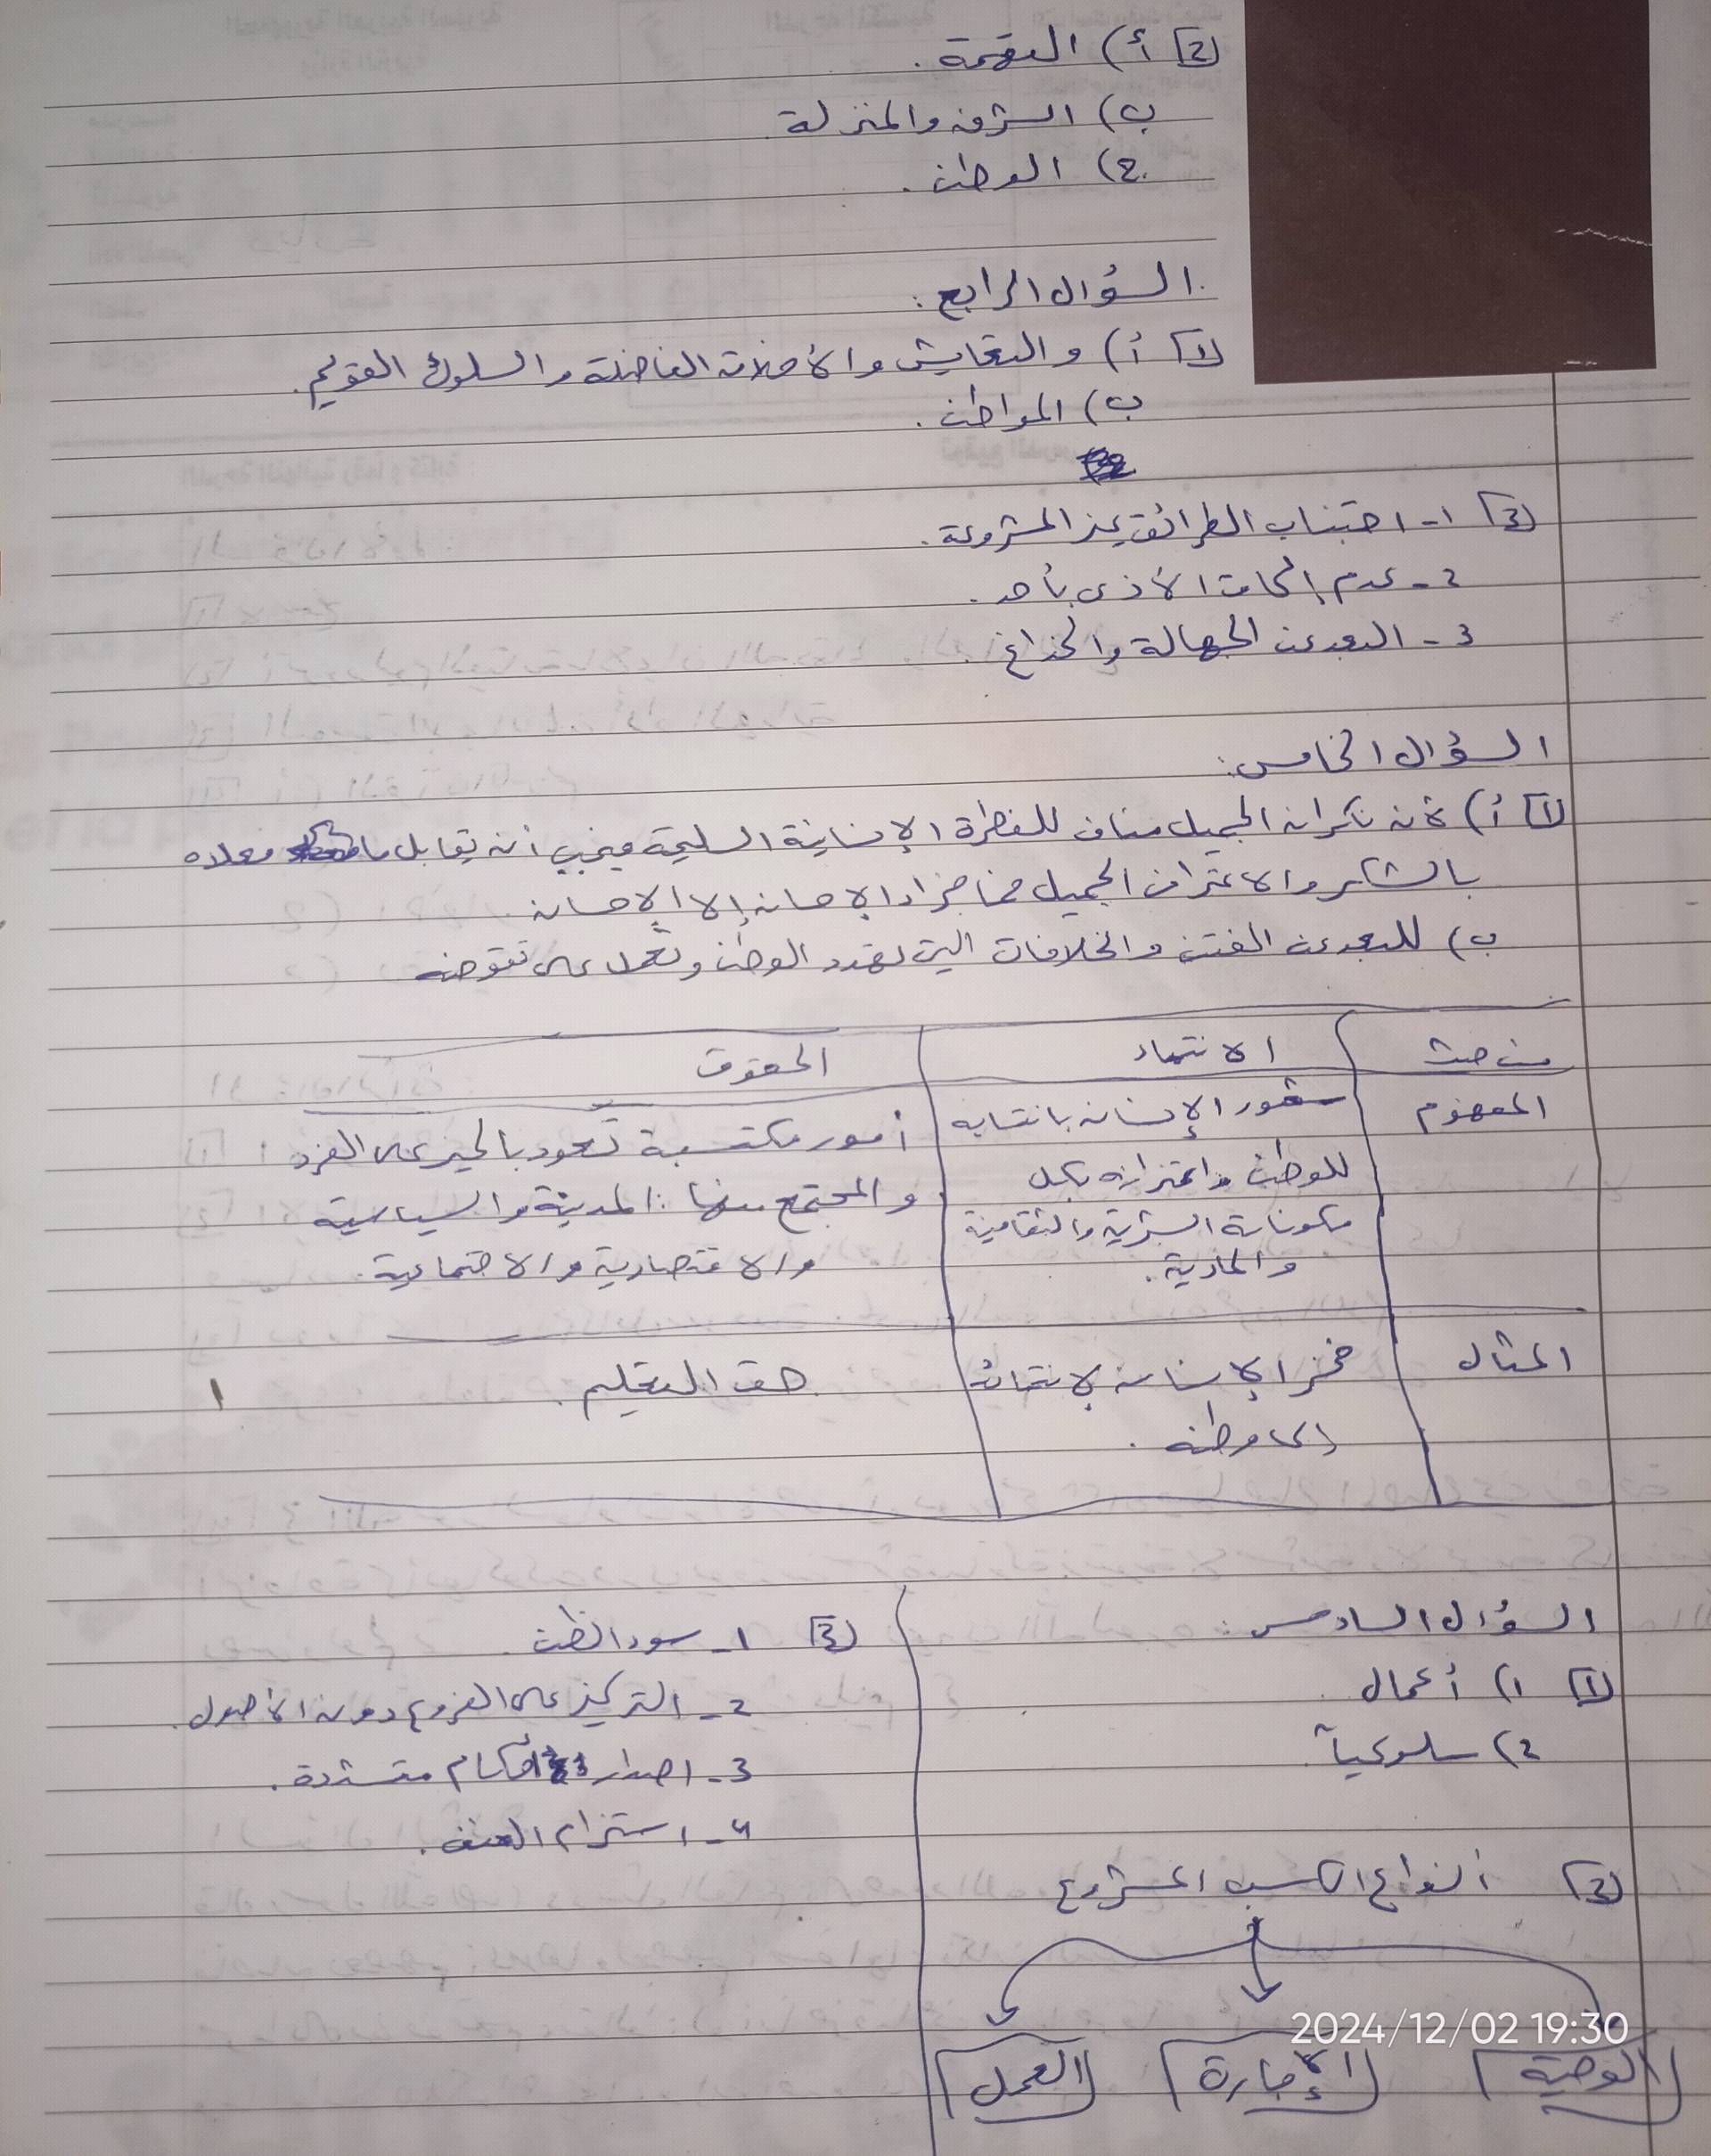 2 أ) النقمة .
ب) الشرف والمنزلة
ج) الوطن .
السؤال الرابع :
1 أ) والتعايش والأخلاق الفاضلة والسلوك القويم .
ب) المواطن .
3 1- اجتناب الطرائق غير المشروعة .
2- عدم إلحاق الأذى بأحد .
3- البعد عن الجهالة والخداع .
السؤال الخامس :
1 أ) لأن نكران الجميل مناف للفطرة الإنسانية السليمة فيجب أن يقابل ما فعلاه
بالشكر والاعتراف الجميل فما جزاء الإحسان إلا الإحسان
ب) للبعد عن الفتن والخلافات التي تهدد الوطن وتعمل على تقوضه
من حيث الانتماء الحقوق
المفهوم شعور الإنسان بانتسابه للوطن واعتزازه بكل مكوناته البشرية والثقافية والمادية . أمور مكتسبة تعود بالخير على الفرد والمجتمع منها : المدنية والسياسية والاقتصادية والاجتماعية .
المثال فخر الإنسان لانتمائه إلى وطنه . حق التعليم .
السؤال السادس :
1 1) أعمال .
2) سلوكياً .
2 أنواع الكسب المشروع
الوصية الإجارة العمل
3 1- سوء الظن .
2- التركيز على الفروع دون الأصول .
3- اصدار أحكام متشددة .
4- استزام العنف .
2024/12/02 19:30